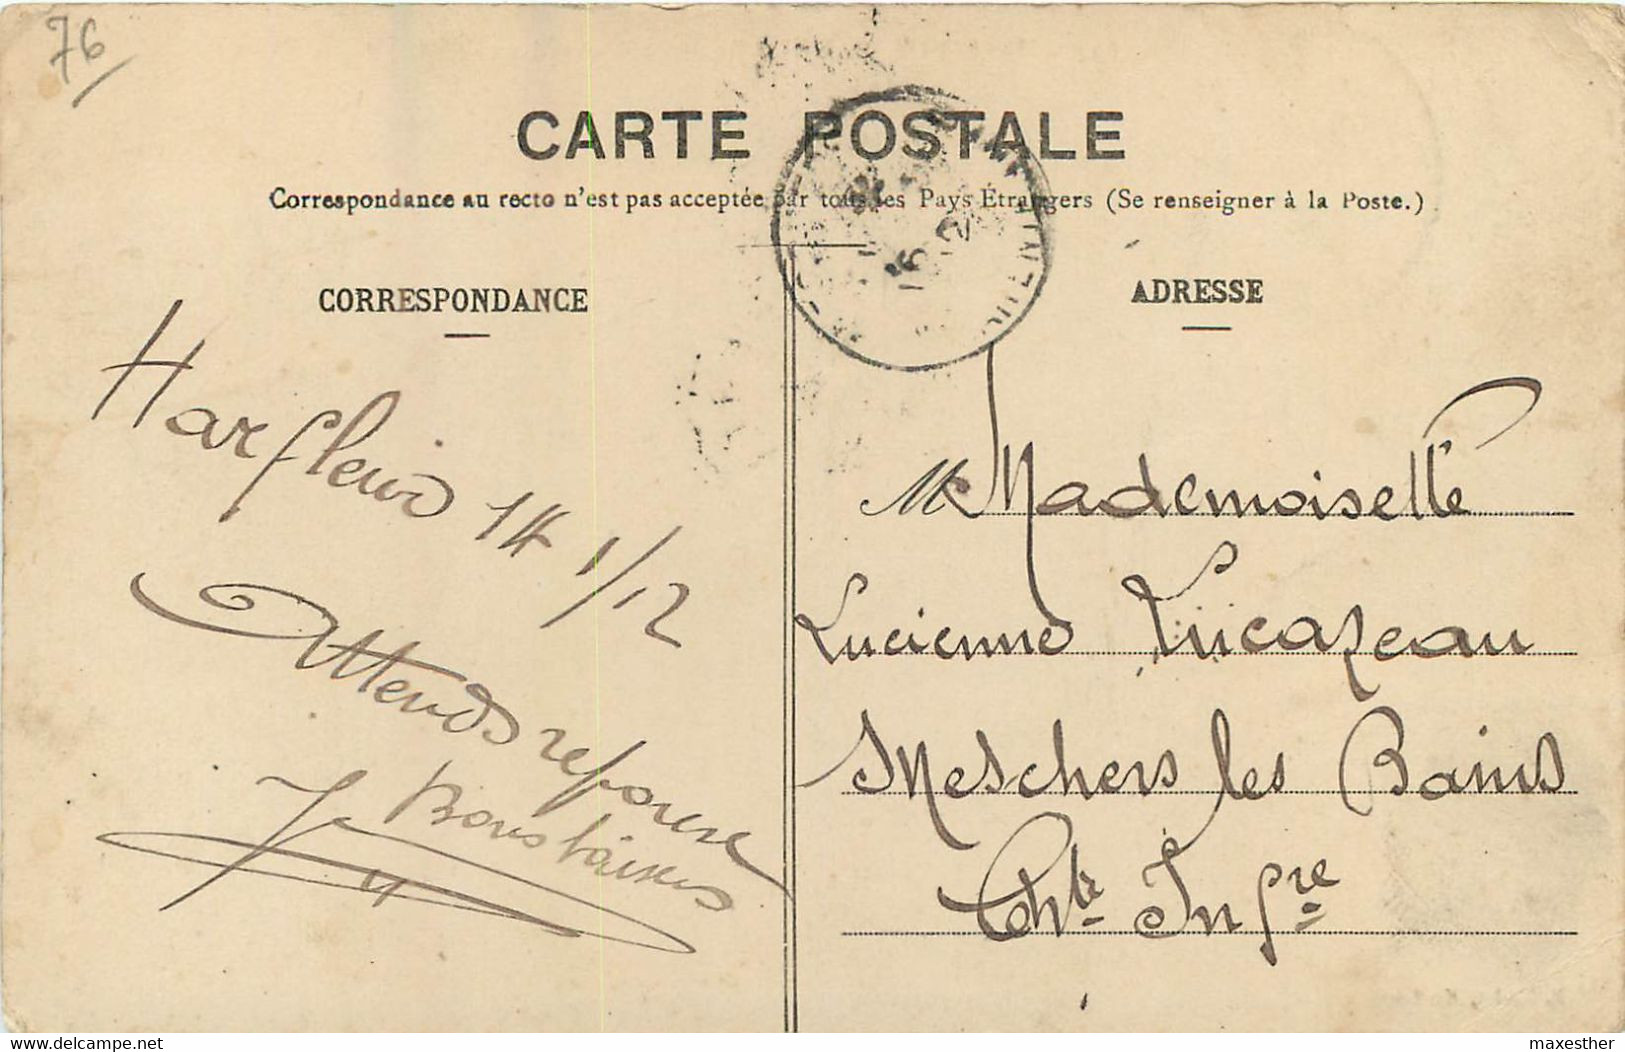 76
CARTE POSTALE
Correspondance au recto n'est pas acceptée par tous les Pays Étrangers (Se renseigner à la Poste.)
CORRESPONDANCE
Harfleur 14 1/12
Attends reponse
Bons baisers
ADRESSE
M Mademoiselle
Lucienne Lucazeau
Meschers les Bains
Chte Infre
maxesther